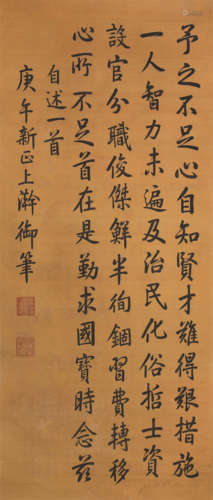 予之不足心自知賢才難得艱措施
一人智力未遍及治民化俗哲士資
設官分職俊傑鮮半徇錮習費轉移
心所不足首在是勤求國寶時念茲
自述一首
庚午新正上澣御筆